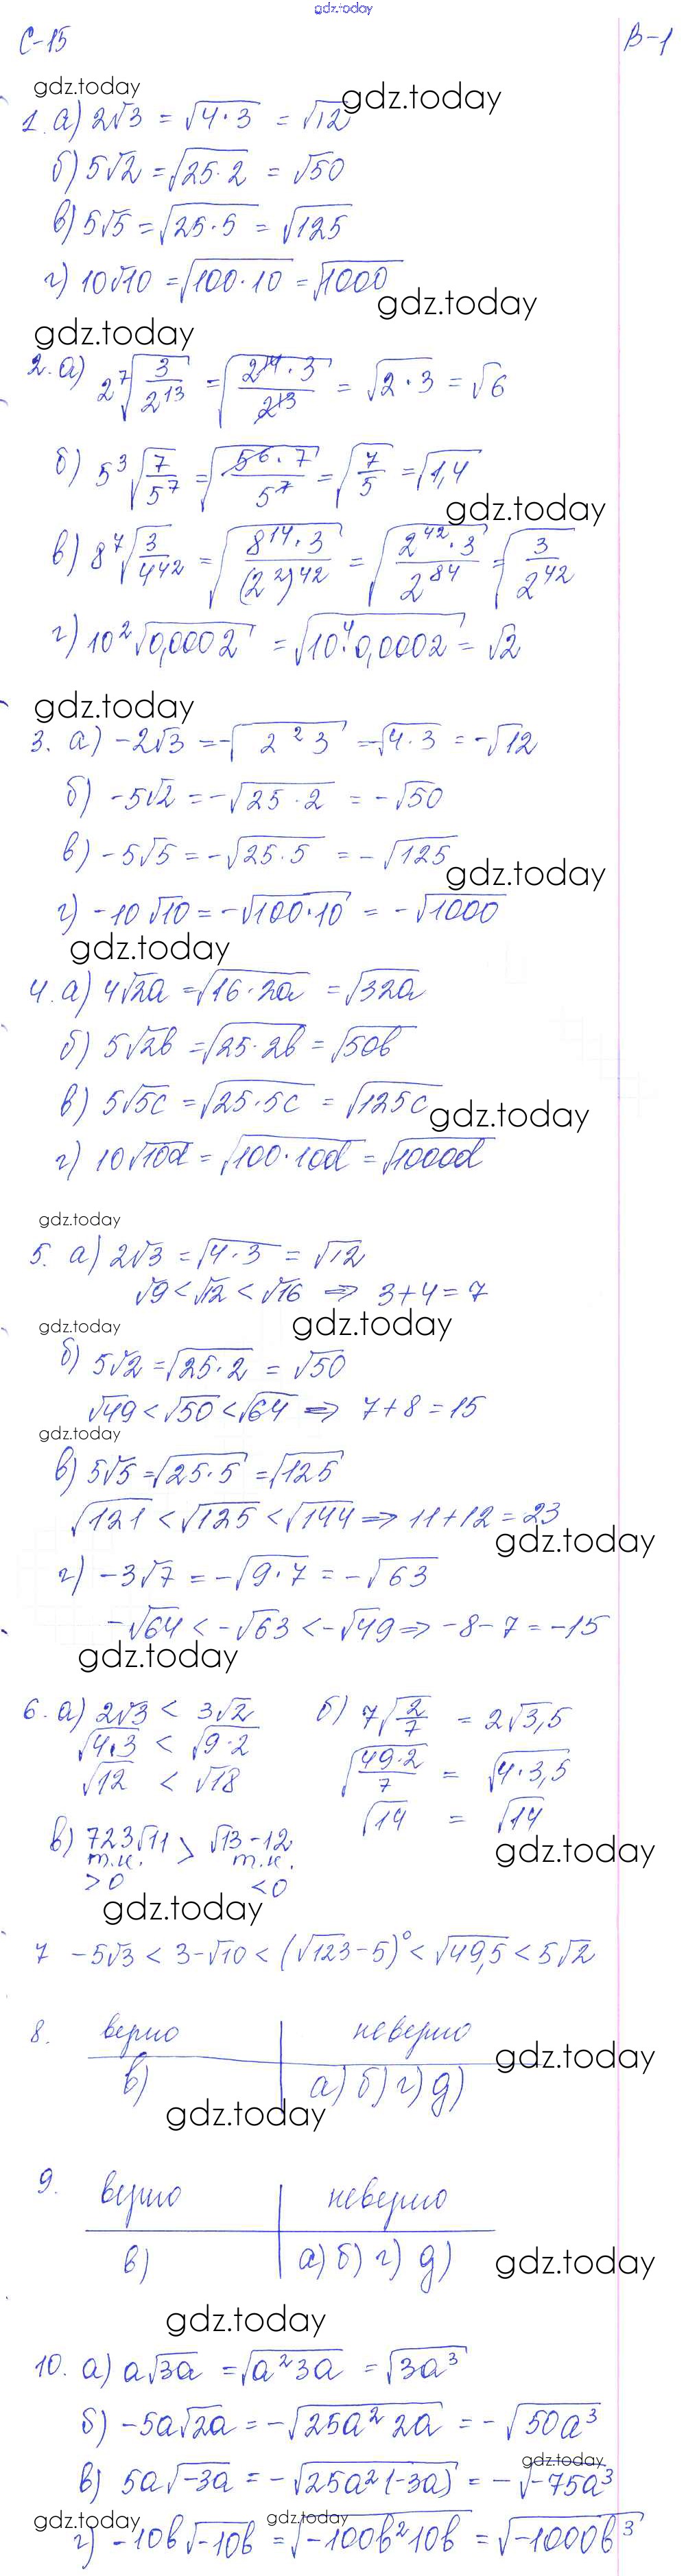 gdz.today
С-15 В-1
gdz.today
gdz.today
1. а) 2√3 = √(4·3) = √12
б) 5√2 = √(25·2) = √50
в) 5√5 = √(25·5) = √125
г) 10√10 = √(100·10) = √1000
gdz.today
gdz.today
2. а) 2⁷√(3/2¹³) = √(2¹⁴·3/2¹³) = √(2·3) = √6
б) 5³√(7/5⁷) = √(5⁶·7/5⁷) = √(7/5) = √1,4
gdz.today
в) 8⁷√(3/4⁴²) = √(8¹⁴·3/(2²)⁴²) = √(2⁴²·3/2⁸⁴) = √(3/2⁴²)
г) 10²√0,0002 = √(10⁴·0,0002) = √2
gdz.today
3. а) -2√3 = -√(2² 3) = -√(4·3) = -√12
б) -5√2 = -√(25·2) = -√50
в) -5√5 = -√(25·5) = -√125
gdz.today
г) -10√10 = -√(100·10) = -√1000
gdz.today
4. а) 4√2a = √(16·2a) = √32a
б) 5√2b = √(25·2b) = √50b
в) 5√5c = √(25·5c) = √125c
gdz.today
г) 10√10d = √(100·10d) = √1000d
gdz.today
5. а) 2√3 = √(4·3) = √12
√9 < √12 < √16 ⇒ 3+4=7
gdz.today
gdz.today
б) 5√2 = √(25·2) = √50
√49 < √50 < √64 ⇒ 7+8=15
gdz.today
в) 5√5 = √(25·5) = √125
√121 < √125 < √144 ⇒ 11+12=23
gdz.today
г) -3√7 = -√(9·7) = -√63
-√64 < -√63 < -√49 ⇒ -8-7=-15
gdz.today
6. а) 2√3 < 3√2 б) 7√(2/7) = 2√3,5
√(4·3) < √(9·2) √(49·2/7) = √(4·3,5)
√12 < √18 √14 = √14
в) 723√11 > √13-12
т.к. т.к.
>0 <0
gdz.today
gdz.today
7 -5√3 < 3-√10 < (√123-5)⁰ < √49,5 < 5√2
8. верно неверно
gdz.today
в) а) б) г) д)
gdz.today
9. верно неверно
в) а) б) г) д)
gdz.today
gdz.today
10. а) a√3a = √(a²3a) = √3a³
б) -5a√2a = -√(25a² 2a) = -√50a³
gdz.today
в) 5a√-3a = -√(25a²(-3a)) = -√-75a³
gdz.today
gdz.today
г) -10b√-10b = √(-100b²10b) = √-1000b³